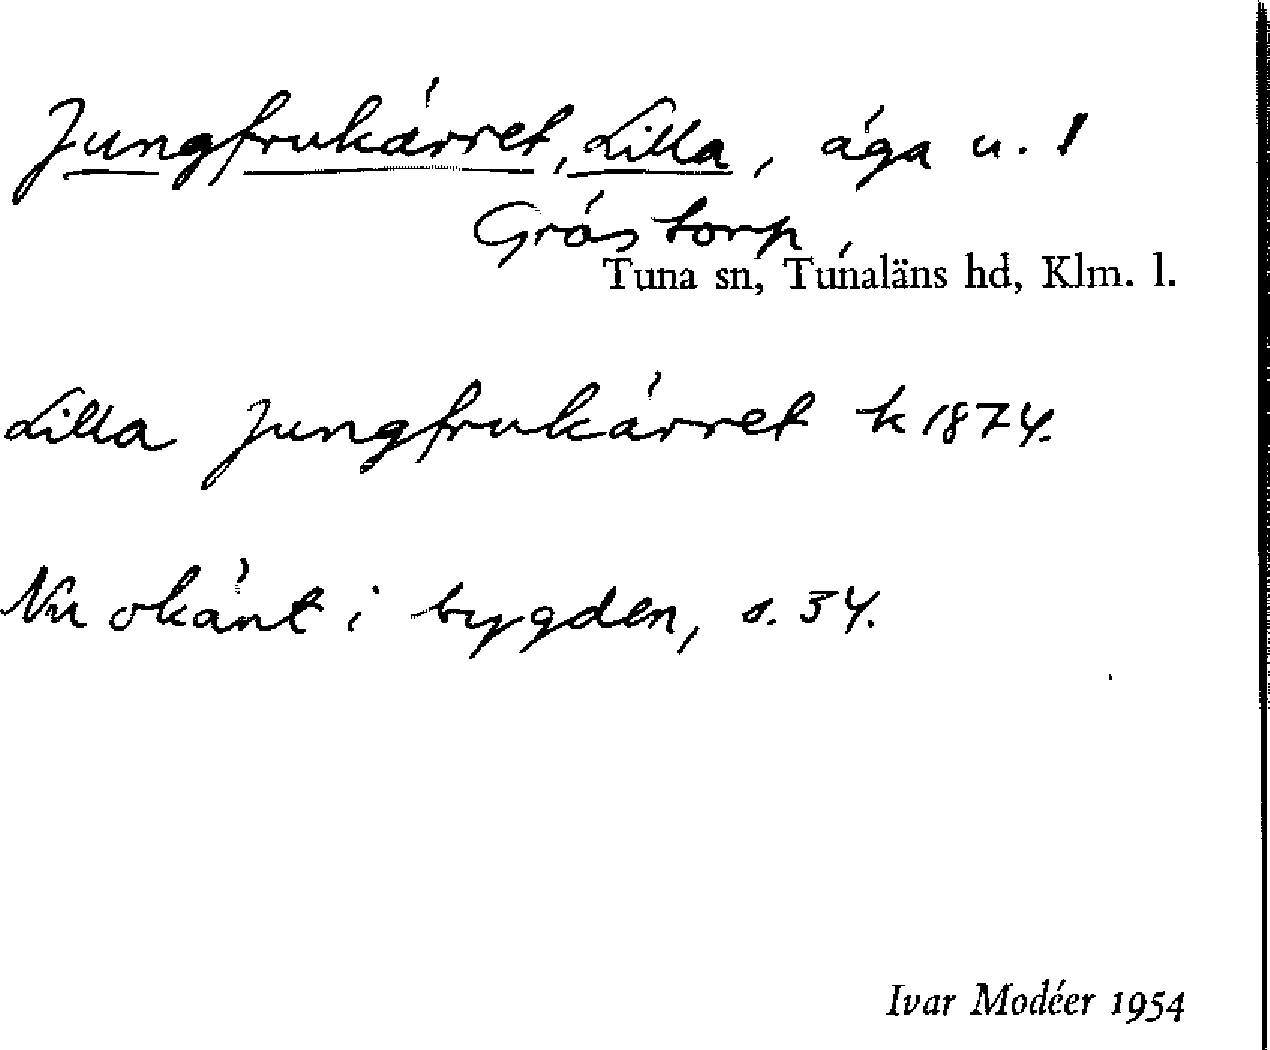 Jungfrukärret, Lilla, äga u. 1
Gråstorp,
Tuna sn, Tunaläns hd, Klm. l.
Lilla Jungfrukärret k 1874.
Nu okänt i bygden, s. 34.
Ivar Modéer 1954